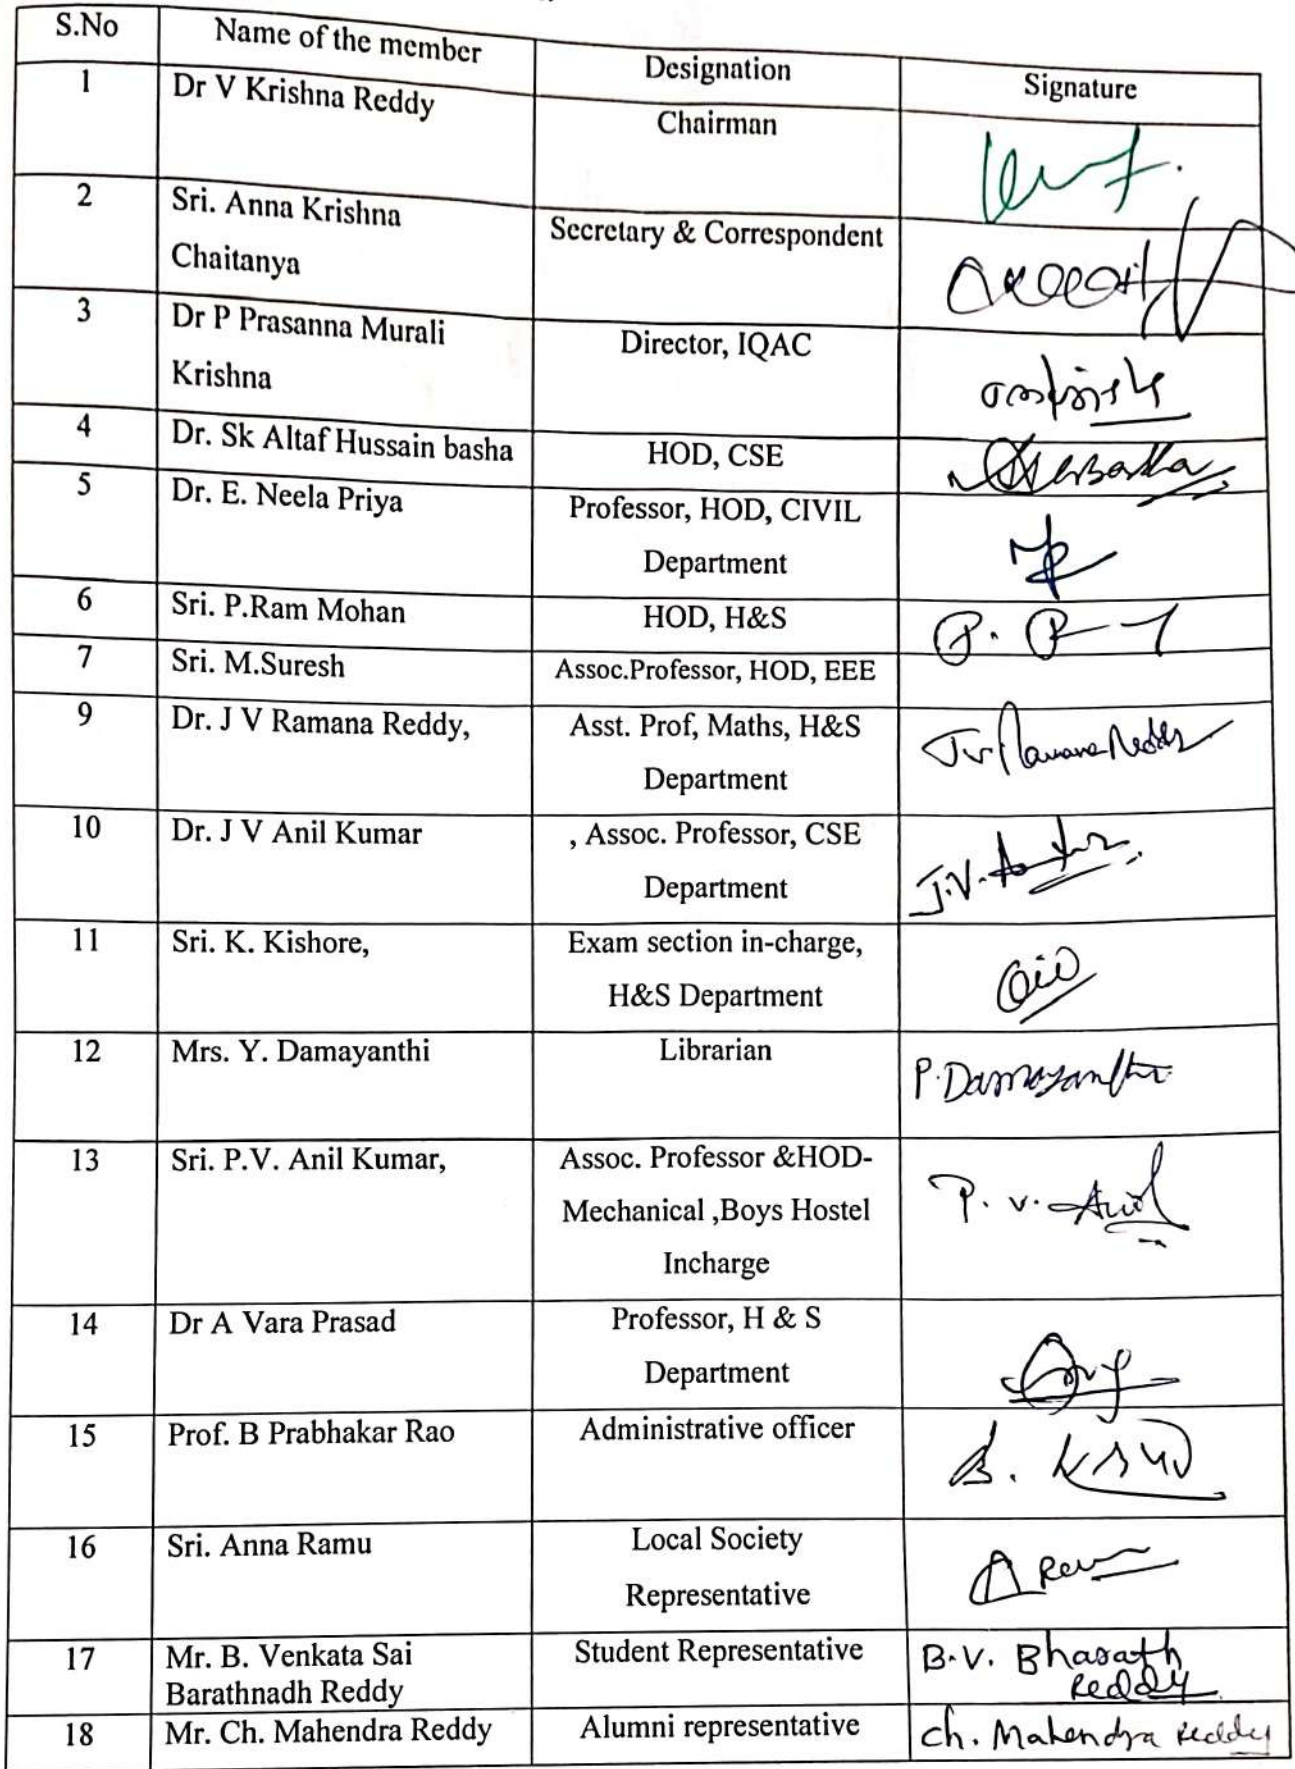 S.No Name of the member Designation Signature
1 Dr V Krishna Reddy Chairman
2 Sri. Anna Krishna Secretary & Correspondent
Chaitanya
3 Dr P Prasanna Murali Director, IQAC
Krishna
4 Dr. Sk Altaf Hussain basha HOD, CSE
5 Dr. E. Neela Priya Professor, HOD, CIVIL
Department
6 Sri. P.Ram Mohan HOD, H&S
7 Sri. M.Suresh Assoc.Professor, HOD, EEE
9 Dr. J V Ramana Reddy, Asst. Prof, Maths, H&S J.V. Ramana Reddy
Department
10 Dr. J V Anil Kumar , Assoc. Professor, CSE J.V.
Department
11 Sri. K. Kishore, Exam section in-charge,
H&S Department
12 Mrs. Y. Damayanthi Librarian P. Damayanthi
13 Sri. P.V. Anil Kumar, Assoc. Professor &HOD- P. V. Anil
Mechanical ,Boys Hostel
Incharge
14 Dr A Vara Prasad Professor, H & S
Department
15 Prof. B Prabhakar Rao Administrative officer B.
16 Sri. Anna Ramu Local Society
Representative
17 Mr. B. Venkata Sai Student Representative B.V. Bharath
Barathnadh Reddy Reddy
18 Mr. Ch. Mahendra Reddy Alumni representative Ch. Mahendra Reddy